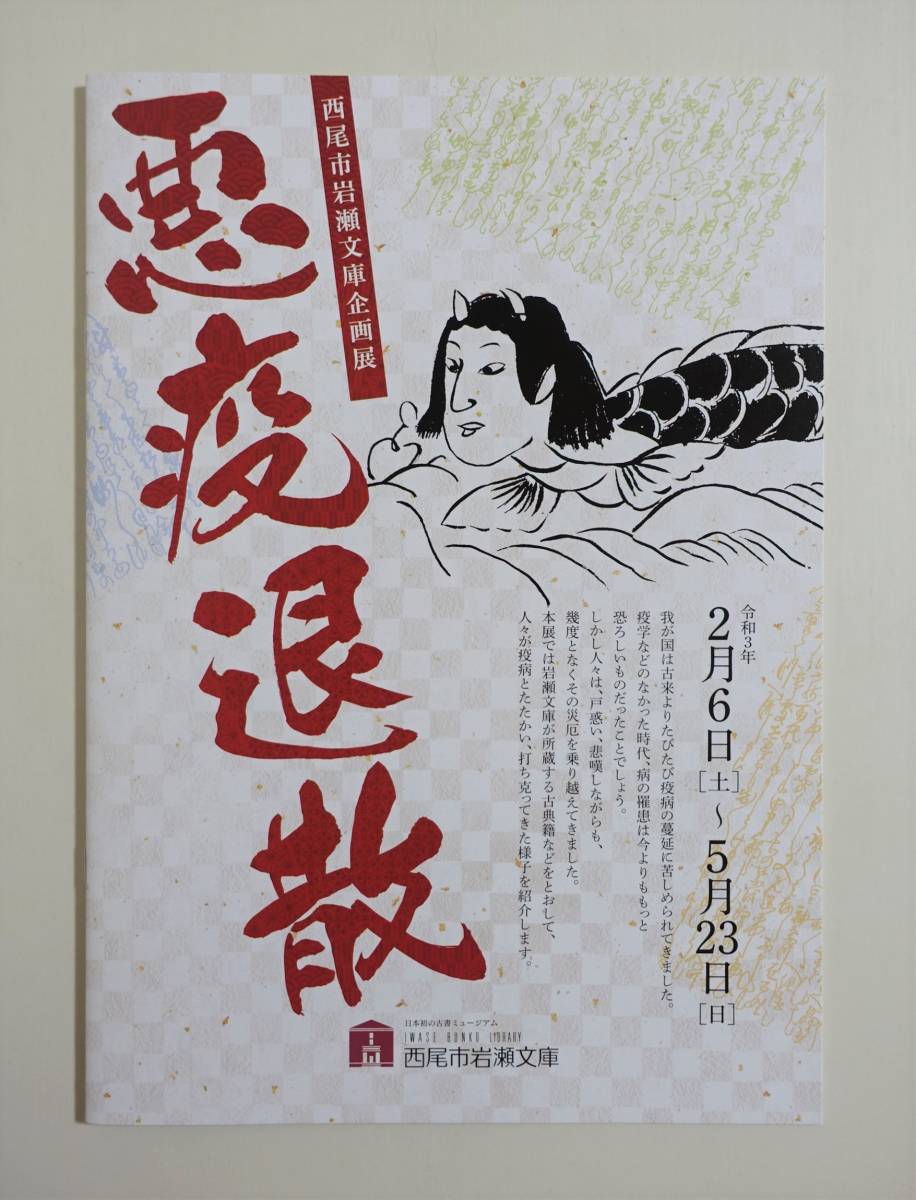 西尾市岩瀬文庫企画展
悪疫退散
令和3年
2月6日［土］～5月23日［日］
我が国は古来よりたびたび疫病の蔓延に苦しめられてきました。
疫学などのなかった時代、病の罹患は今よりももっと
恐ろしいものだったことでしょう。
しかし人々は、戸惑い、悲嘆しながらも、
幾度となくその災厄を乗り越えてきました。
本展では岩瀬文庫が所蔵する古典籍などをとおして、
人々が疫病とたたかい、打ち克ってきた様子を紹介します。
日本初の古書ミュージアム
IWASE BUNKO LIBRARY
西尾市岩瀬文庫